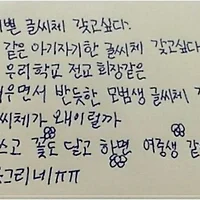 쁜 글씨체 갖고싶다.
같은 아기자기한 글씨체 갖고싶다
우리학교 전교회장같은
우면서 반듯한 모범생 글씨체
씨체가 왜이럴까
고 꽃도 달고 하면 여중생 같
그리네ㅠㅠ